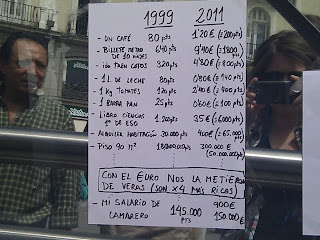 1999 2011
- UN CAFÉ 80 pts 1'20 € (±200 pts)
- BILLETE METRO DE 10 VIAJES 640 pts 9'40€ (±1800 pts)
- 100 320 pts 4'80€ (±800 pts)
- 1 L. DE LECHE 80 pts 0'80€ (±140 pts)
- 1 Kg TOMATES 120 pts 2'40€ (±400 pts)
- 1 BARRA PAN 25 pts 0'60€ (±100 pts)
- LIBRO CIENCIAS 1º DE ESO 1.200 pts 35€ (±6000 pts)
- ALQUILER HABITACIÓN 30.000 pts 400€ (±65.000 pts)
- PISO 90 m² 300.000 € (50.000.000 pts)
CON EL EURO NOS LA METIERON
DE VERAS (SON X4 MÁS RICOS)
- MI SALARIO DE CAMARERO 145.000 PTS 900€ 150.000